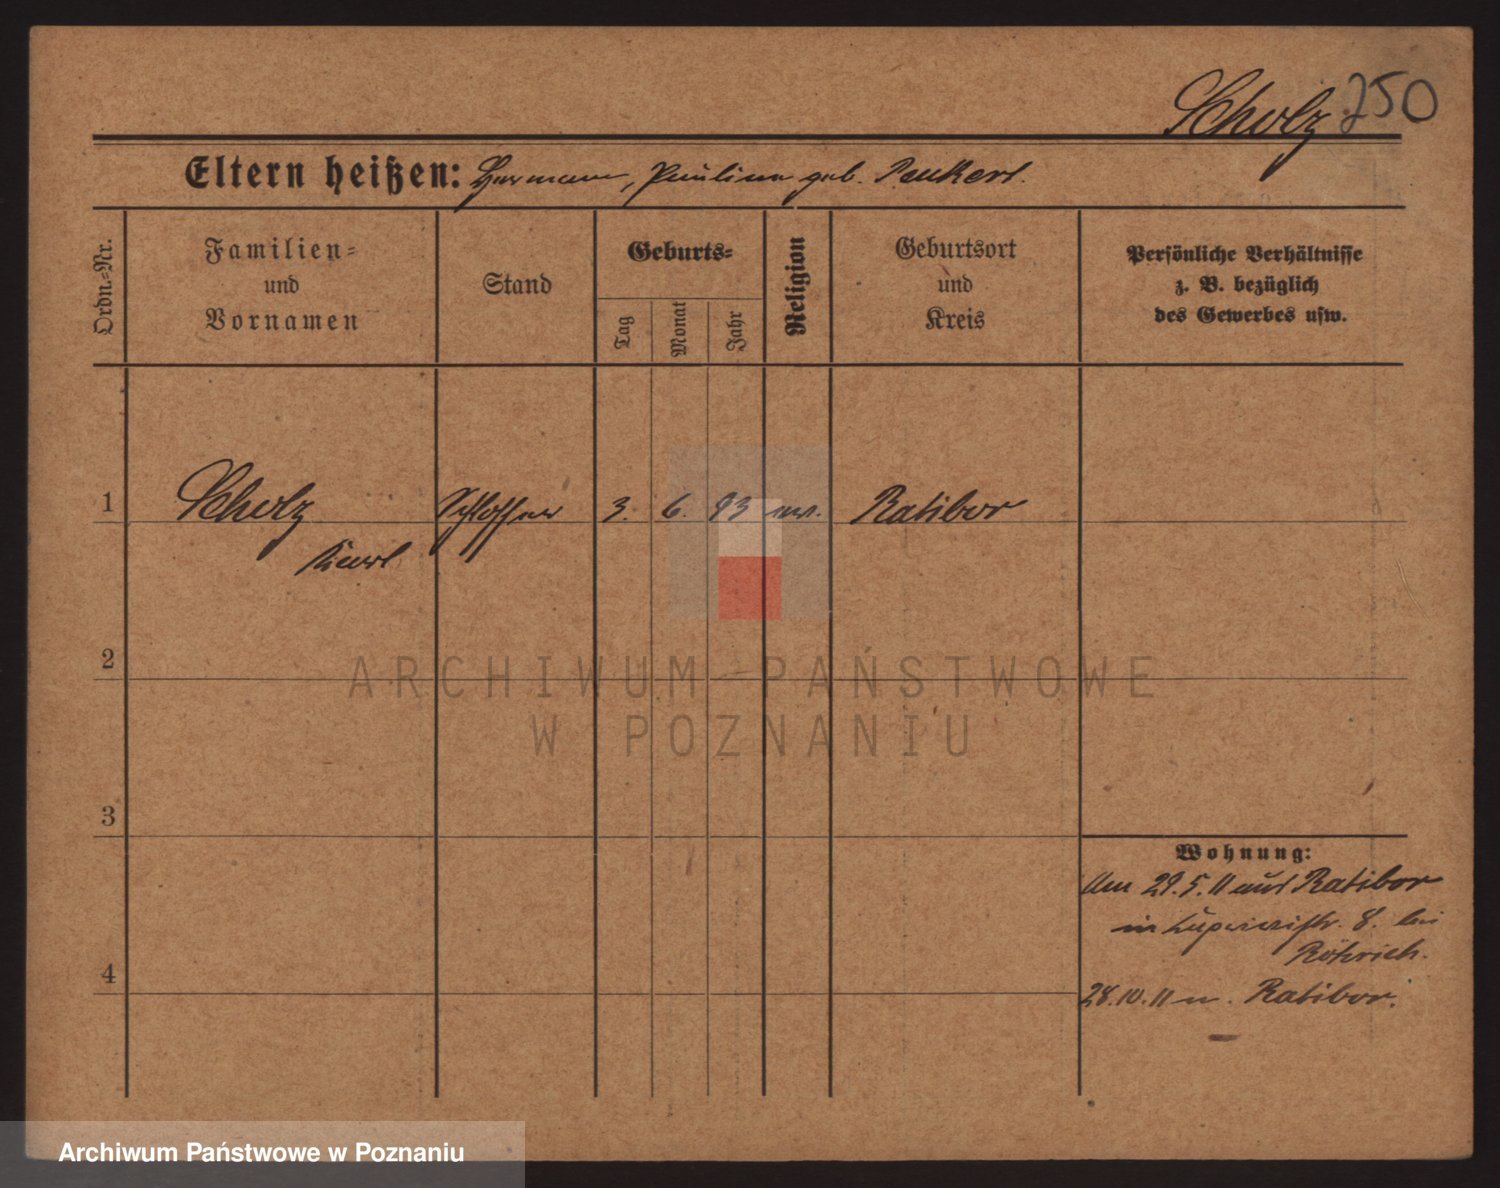 Scholz 250
Eltern heißen: Hermann, Pauline geb. Peukert.
Ordn.-Nr.
Familien-
und
Vornamen
Stand
Geburts-
Tag
Monat
Jahr
Religion
Geburtsort
und
Kreis
Persönliche Verhältnisse
z. B. bezüglich
des Gewerbes usw.
1 Scholz Schlosser 3. 6. 93 ev. Ratibor
Karl
2
ARCHIWUM PAŃSTWOWE
W POZNANIU
3
Wohnung:
Am 29.5.11 aus Ratibor
in 8. bei
Röhrich.
4
28.10.11 n. Ratibor.
Archiwum Państwowe w Poznaniu